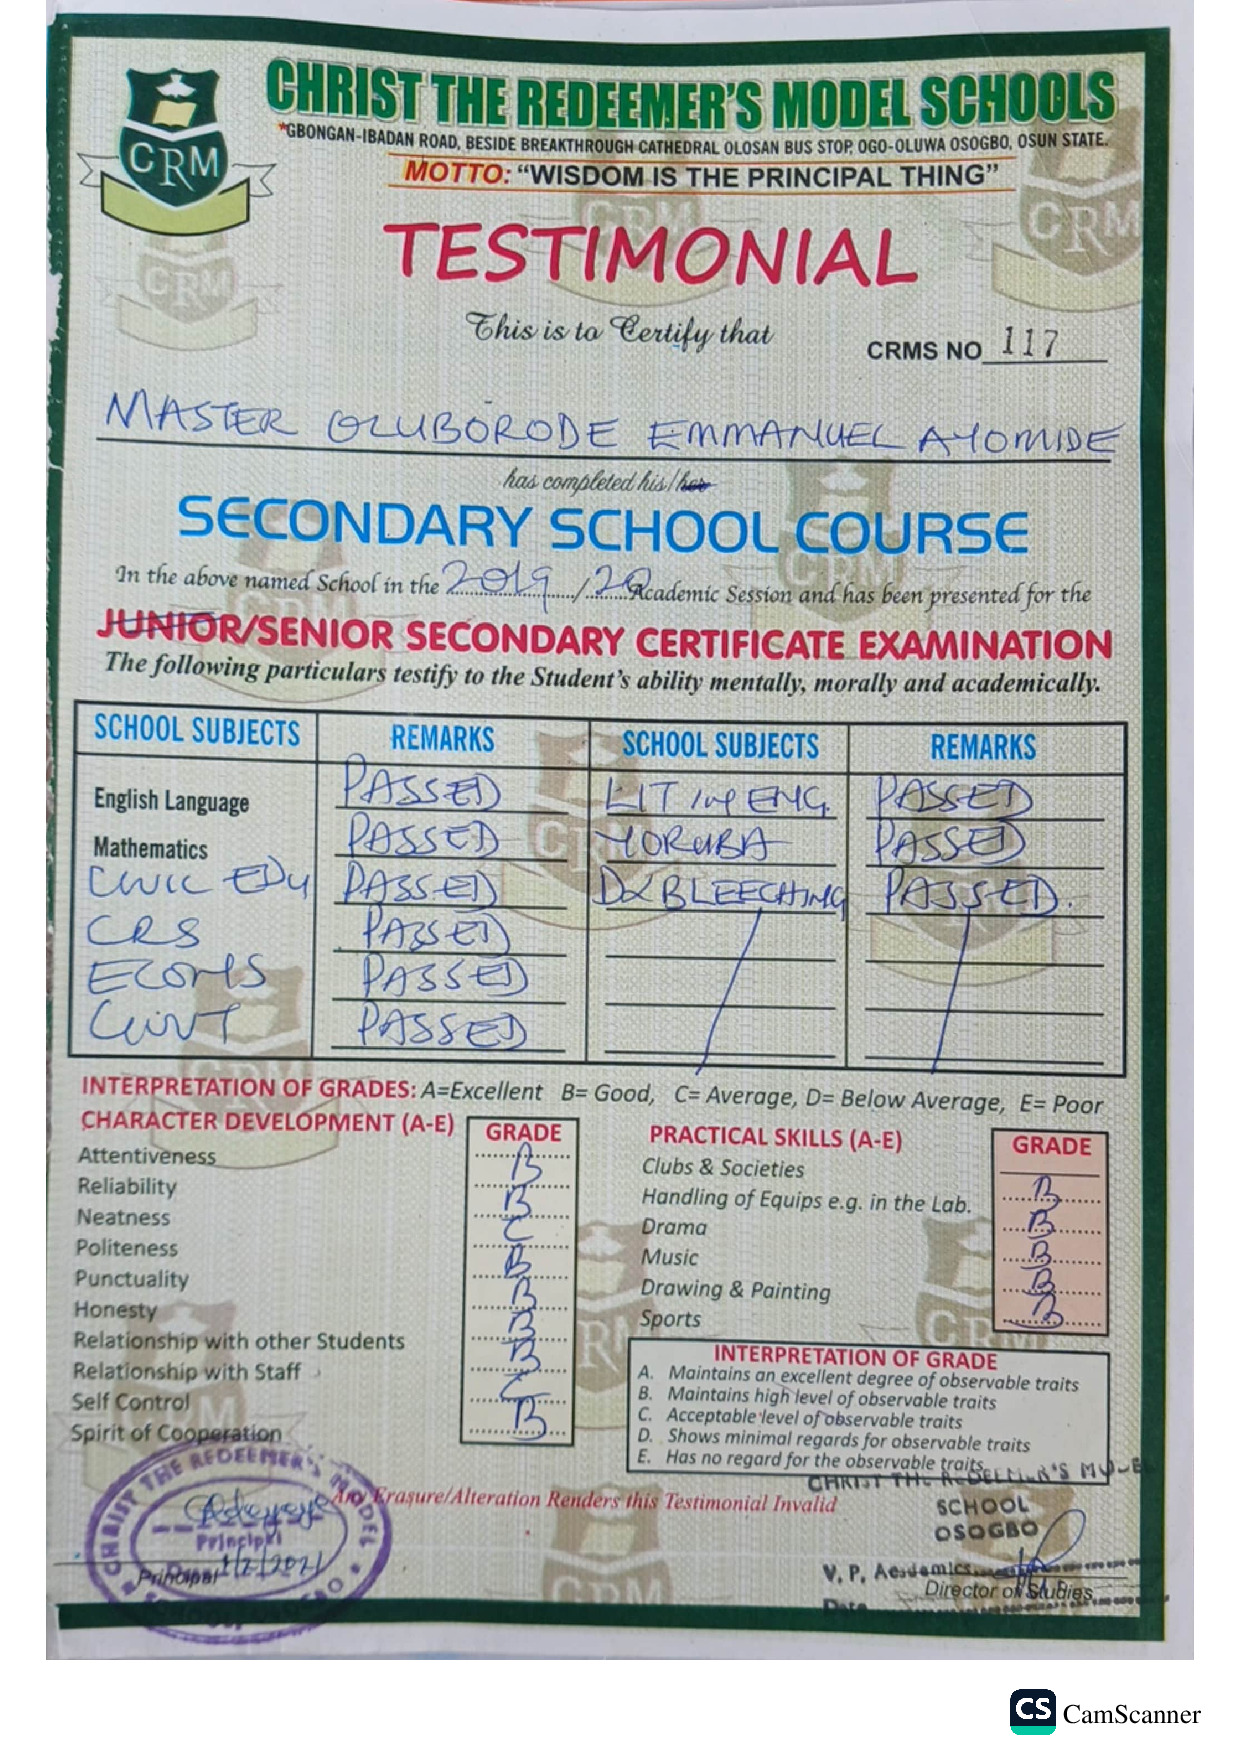 CHRIST THE REDEEMER'S MODEL SCHOOLS
*GBONGAN-IBADAN ROAD, BESIDE BREAKTHROUGH CATHEDRAL OLOSAN BUS STOP, OGO-OLUWA OSOGBO, OSUN STATE.
CRM
MOTTO: “WISDOM IS THE PRINCIPAL THING”
TESTIMONIAL
This is to Certify that
CRMS NO 117
MASTER OLUBORODE EMMANUEL AYOMIDE
has completed his/her
SECONDARY SCHOOL COURSE
In the above named School in the 2019/20 Academic Session and has been presented for the
JUNIOR/SENIOR SECONDARY CERTIFICATE EXAMINATION
The following particulars testify to the Student's ability mentally, morally and academically.
SCHOOL SUBJECTS REMARKS SCHOOL SUBJECTS REMARKS
English Language PASSED LIT in ENG. PASSED
Mathematics PASSED YORUBA PASSED
CIVIC EDU PASSED D&BLEECHING PASSED.
CRS PASSED
ECOMS PASSED
GOVT PASSED
INTERPRETATION OF GRADES: A=Excellent B= Good, C= Average, D= Below Average, E= Poor
CHARACTER DEVELOPMENT (A-E) GRADE
Attentiveness B
Reliability B
Neatness C
Politeness B
Punctuality B
Honesty B
Relationship with other Students B
Relationship with Staff
Self Control C
Spirit of Cooperation B
PRACTICAL SKILLS (A-E) GRADE
Clubs & Societies
Handling of Equips e.g. in the Lab. B
Drama B
Music B
Drawing & Painting B
Sports B
INTERPRETATION OF GRADE
A. Maintains an excellent degree of observable traits
B. Maintains high level of observable traits
C. Acceptable level of observable traits
D. Shows minimal regards for observable traits
E. Has no regard for the observable traits
Any Erasure/Alteration Renders this Testimonial Invalid
CHRIST THE REDEEMER'S MODEL
Principal
1/2/2021
Principal
CHRIST THE REDEEMER'S MODEL
SCHOOL
OSOGBO
V. P. Academics
Director of Studies
Date
CS CamScanner